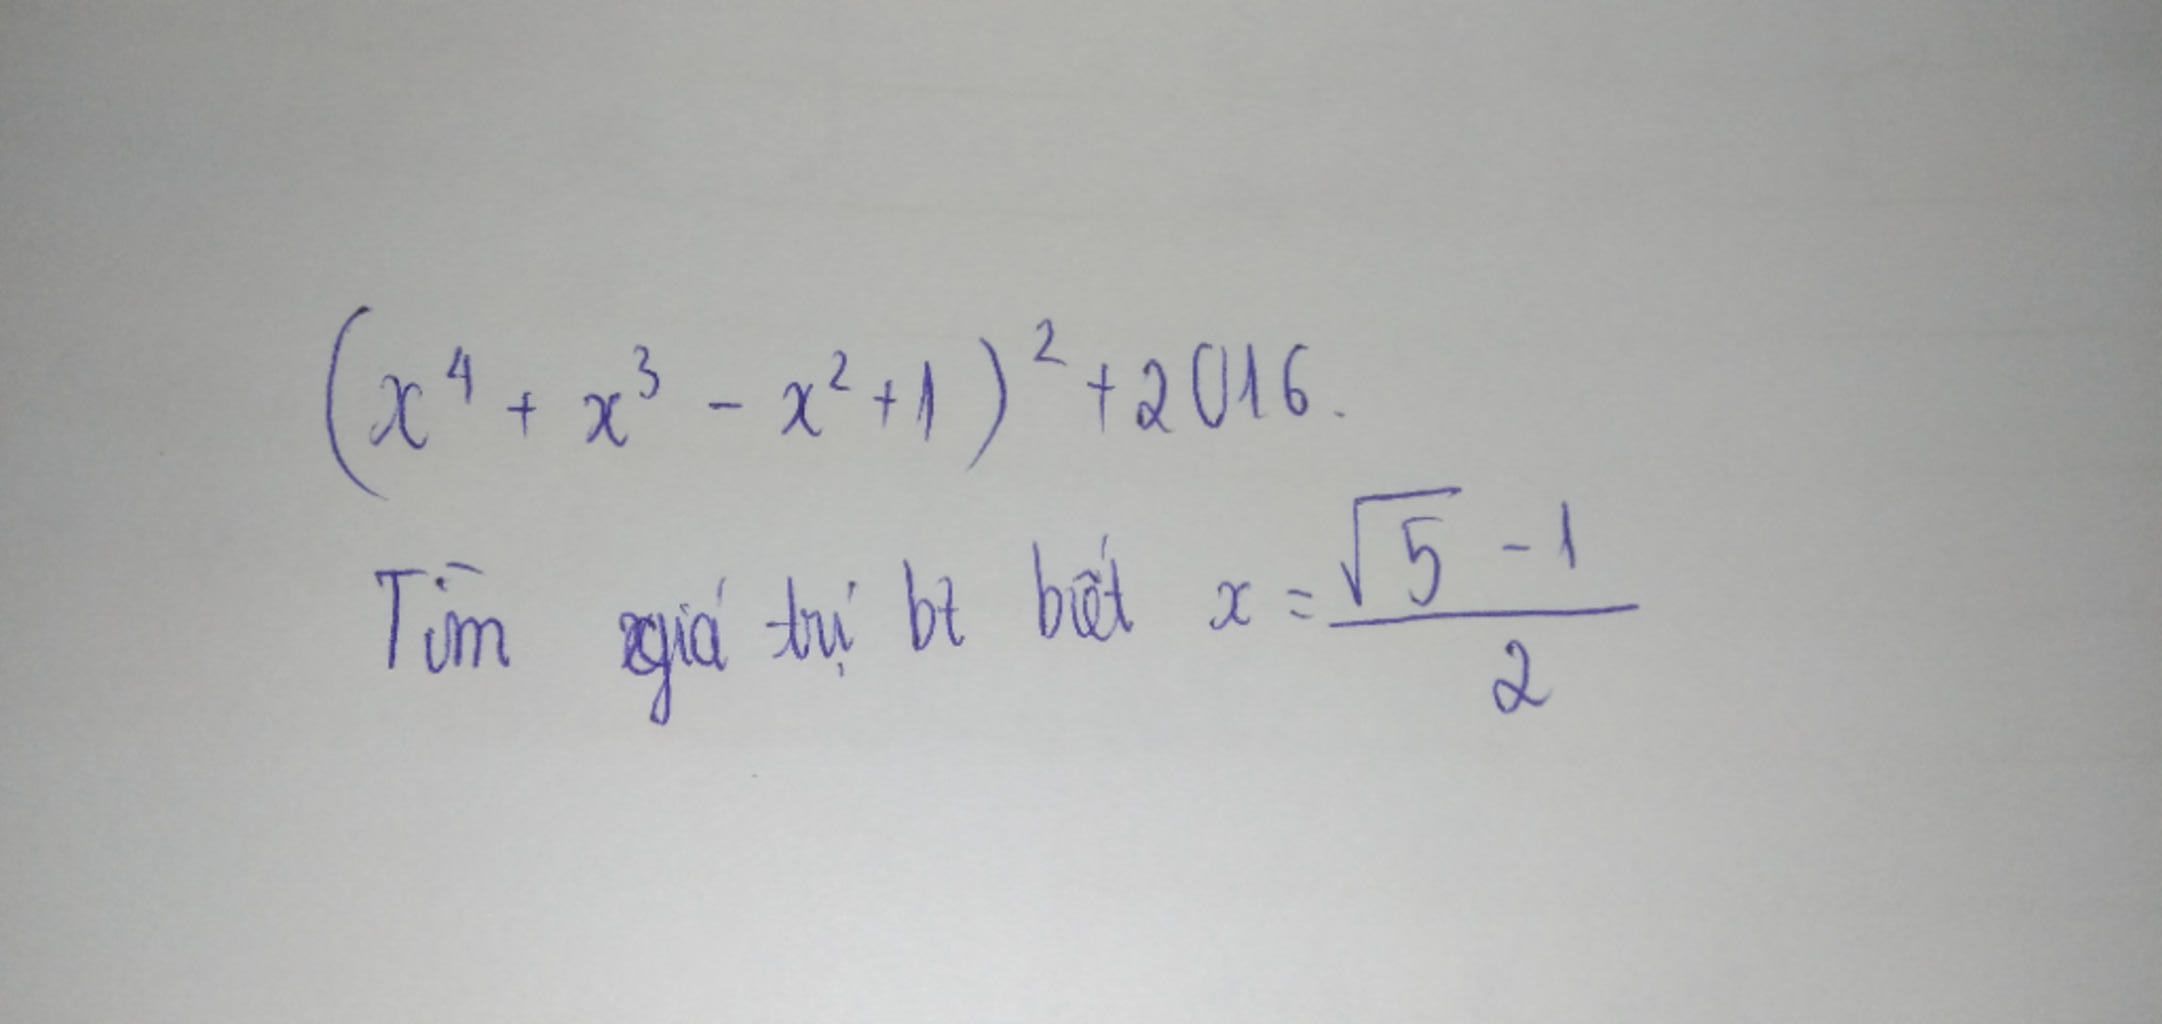 (x⁴ + x³ - x² + 1)² + 2016.
Tìm giá trị bt biết x = (√5 - 1)/2